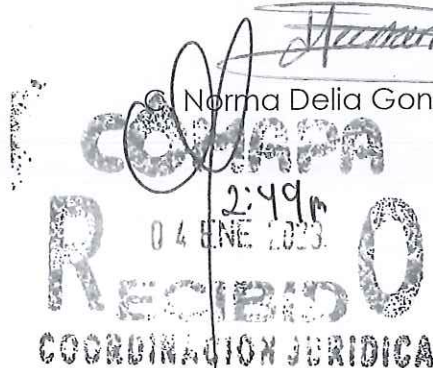 C Norma Delia Gon
COMAPA
2:49 pm
04 ENE 2023
RECIBIDO
COORDINACION JURIDICA